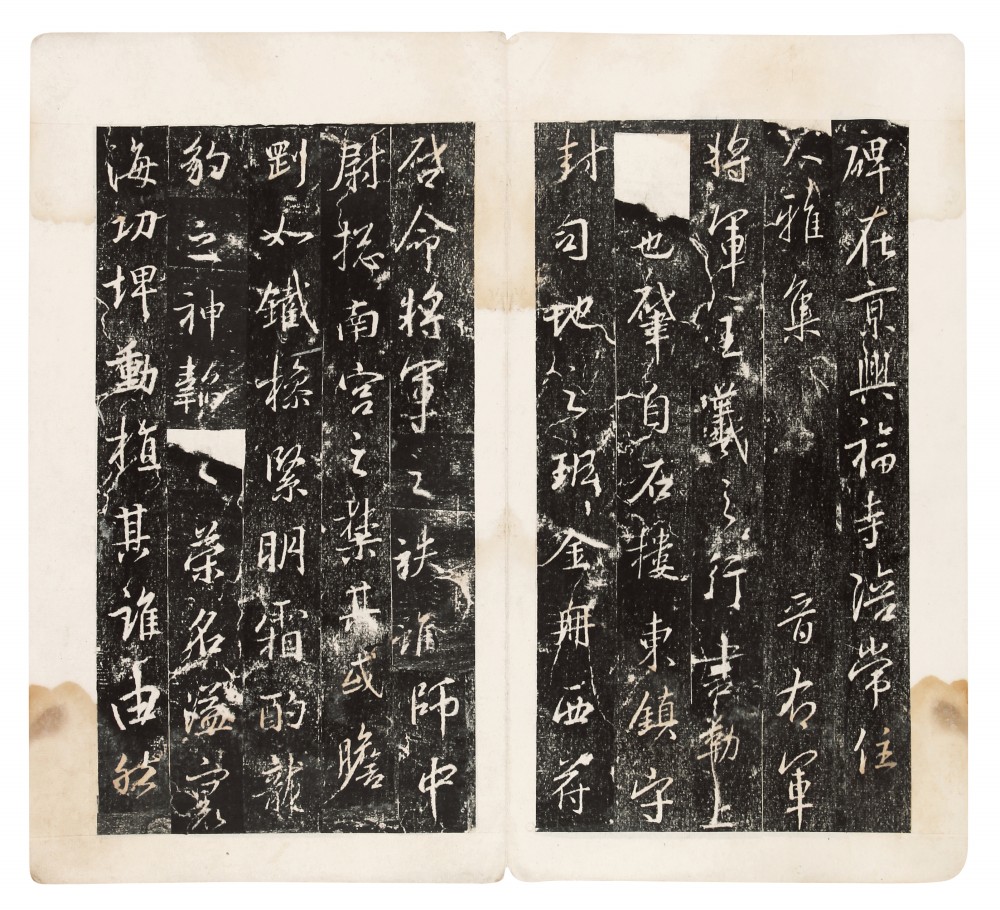 碑在京興福寺陪常住
大雅集 晉右軍
將軍王羲之行書勒上
也肇自石樓東鎮守
封司地之班金冊西符
啓命將軍之秩誰師中
尉揔南宮之禁其或膽
剛如鐵操緊明霜酌龍
豹之神韜之榮名溢寰
海功埤動植其誰由然